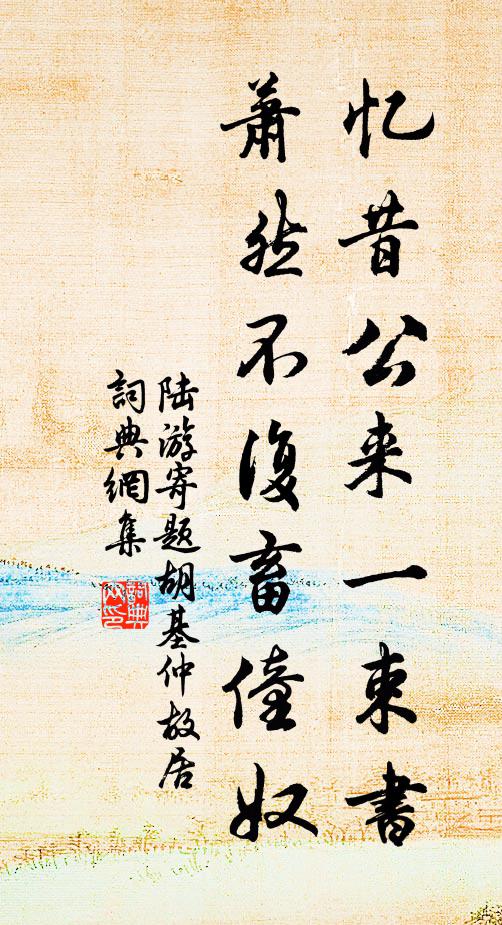 忆昔公来一束书
萧然不復畜僮奴
陆游寄题胡基仲故居
詞典網集